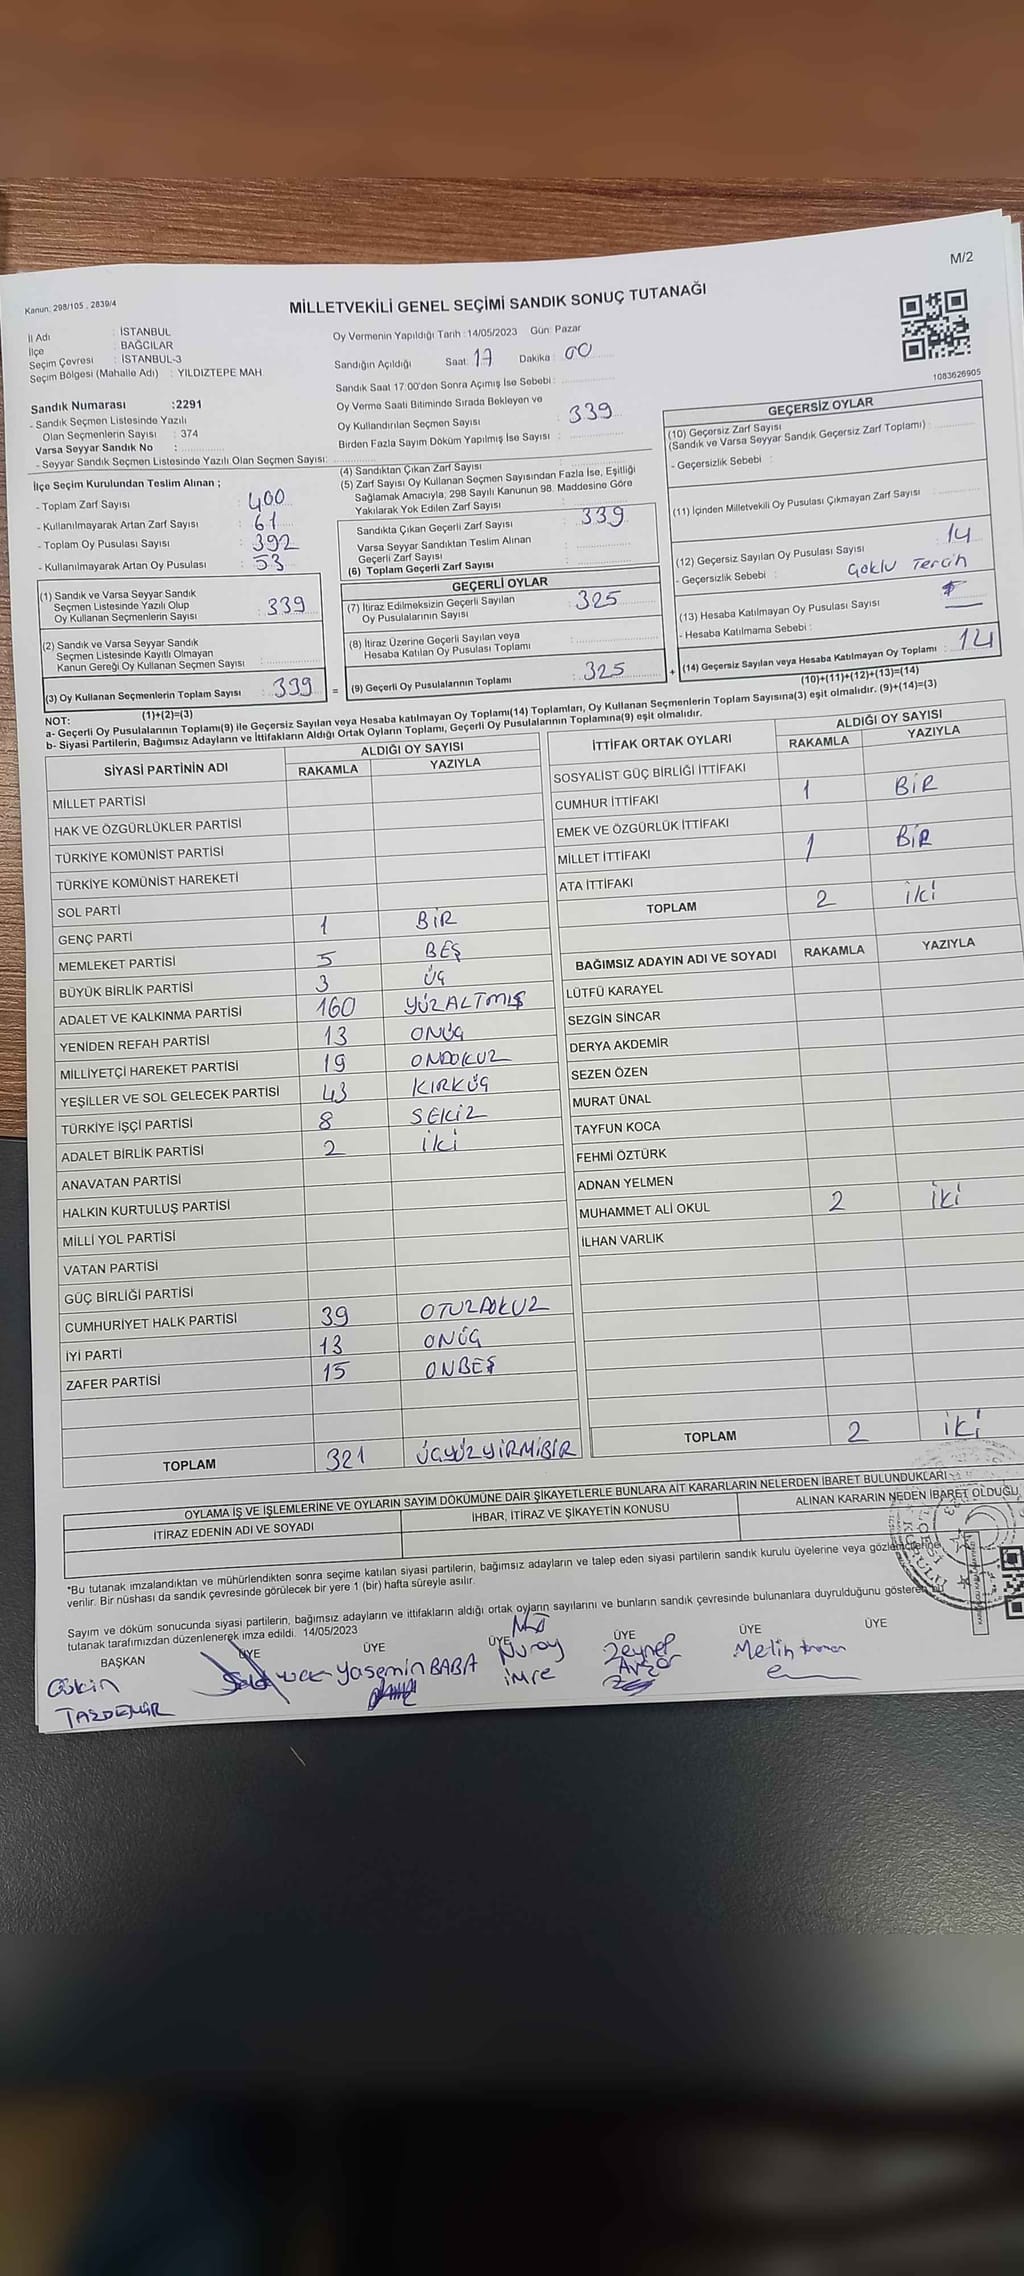 M/2
Kanun. 298/105 , 2839/4
MİLLETVEKİLİ GENEL SEÇİMİ SANDIK SONUÇ TUTANAĞI
İl Adı : İSTANBUL
İlçe : BAĞCILAR
Seçim Çevresi : İSTANBUL-3
Seçim Bölgesi (Mahalle Adı) : YILDIZTEPE MAH.
Sandık Numarası :2291
- Sandık Seçmen Listesinde Yazılı
Olan Seçmenlerin Sayısı : 374
Varsa Seyyar Sandık No :
- Seyyar Sandık Seçmen Listesinde Yazılı Olan Seçmen Sayısı:
Oy Vermenin Yapıldığı Tarih : 14/05/2023 Gün: Pazar
Sandığın Açıldığı Saat: 17 Dakika : 00
Sandık Saat 17:00'den Sonra Açımış İse Sebebi :
Oy Verme Saati Bitiminde Sırada Bekleyen ve
Oy Kullandırılan Seçmen Sayısı : 339
Birden Fazla Sayım Döküm Yapılmış İse Sayısı :
1083626905
İlçe Seçim Kurulundan Teslim Alınan ;
- Toplam Zarf Sayısı : 400
- Kullanılmayarak Artan Zarf Sayısı : 61
- Toplam Oy Pusulası Sayısı : 392
- Kullanılmayarak Artan Oy Pusulası : 53
(1) Sandık ve Varsa Seyyar Sandık
Seçmen Listesinde Yazılı Olup
Oy Kullanan Seçmenlerin Sayısı : 339
(2) Sandık ve Varsa Seyyar Sandık
Seçmen Listesinde Kayıtlı Olmayan
Kanun Gereği Oy Kullanan Seçmen Sayısı :
(3) Oy Kullanan Seçmenlerin Toplam Sayısı : 339 =
(1)+(2)=(3)
(4) Sandıktan Çıkan Zarf Sayısı :
(5) Zarf Sayısı Oy Kullanan Seçmen Sayısından Fazla İse, Eşitliği
Sağlamak Amacıyla, 298 Sayılı Kanunun 98. Maddesine Göre
Yakılarak Yok Edilen Zarf Sayısı :
Sandıkta Çıkan Geçerli Zarf Sayısı : 339
Varsa Seyyar Sandıktan Teslim Alınan
Geçerli Zarf Sayısı :
(6) Toplam Geçerli Zarf Sayısı :
GEÇERLİ OYLAR
(7) İtiraz Edilmeksizin Geçerli Sayılan
Oy Pusulalarının Sayısı : 325
(8) İtiraz Üzerine Geçerli Sayılan veya
Hesaba Katılan Oy Pusulası Toplamı :
(9) Geçerli Oy Pusulalarının Toplamı : 325 +
GEÇERSİZ OYLAR
(10) Geçersiz Zarf Sayısı
(Sandık ve Varsa Seyyar Sandık Geçersiz Zarf Toplamı) :
- Geçersizlik Sebebi :
(11) İçinden Milletvekili Oy Pusulası Çıkmayan Zarf Sayısı :
(12) Geçersiz Sayılan Oy Pusulası Sayısı : 14
- Geçersizlik Sebebi : Çoklu Tercih
(13) Hesaba Katılmayan Oy Pusulası Sayısı :
- Hesaba Katılmama Sebebi :
(14) Geçersiz Sayılan veya Hesaba Katılmayan Oy Toplamı : 14
(10)+(11)+(12)+(13)=(14)
NOT:
a- Geçerli Oy Pusulalarının Toplamı(9) ile Geçersiz Sayılan veya Hesaba katılmayan Oy Toplamı(14) Toplamları, Oy Kullanan Seçmenlerin Toplam Sayısına(3) eşit olmalıdır. (9)+(14)=(3)
b- Siyasi Partilerin, Bağımsız Adayların ve İttifakların Aldığı Ortak Oyların Toplamı, Geçerli Oy Pusulalarının Toplamına(9) eşit olmalıdır.
SİYASİ PARTİNİN ADI ALDIĞI OY SAYISI
RAKAMLA YAZIYLA
MİLLET PARTİSİ
HAK VE ÖZGÜRLÜKLER PARTİSİ
TÜRKİYE KOMÜNİST PARTİSİ
TÜRKİYE KOMÜNİST HAREKETİ
SOL PARTİ
GENÇ PARTİ 1 BİR
MEMLEKET PARTİSİ 5 BEŞ
BÜYÜK BİRLİK PARTİSİ 3 ÜÇ
ADALET VE KALKINMA PARTİSİ 160 YÜZALTMIŞ
YENİDEN REFAH PARTİSİ 13 ONÜÇ
MİLLİYETÇİ HAREKET PARTİSİ 19 ONDOKUZ
YEŞİLLER VE SOL GELECEK PARTİSİ 43 KIRKÜÇ
TÜRKİYE İŞÇİ PARTİSİ 8 SEKİZ
ADALET BİRLİK PARTİSİ 2 İKİ
ANAVATAN PARTİSİ
HALKIN KURTULUŞ PARTİSİ
MİLLİ YOL PARTİSİ
VATAN PARTİSİ
GÜÇ BİRLİĞİ PARTİSİ
CUMHURİYET HALK PARTİSİ 39 OTUZDOKUZ
İYİ PARTİ 13 ONÜÇ
ZAFER PARTİSİ 15 ONBEŞ
TOPLAM 321 ÜÇYÜZYİRMİBİR
İTTİFAK ORTAK OYLARI ALDIĞI OY SAYISI
RAKAMLA YAZIYLA
SOSYALİST GÜÇ BİRLİĞİ İTTİFAKI
CUMHUR İTTİFAKI 1 BİR
EMEK VE ÖZGÜRLÜK İTTİFAKI
MİLLET İTTİFAKI 1 BİR
ATA İTTİFAKI
TOPLAM 2 İKİ
BAĞIMSIZ ADAYIN ADI VE SOYADI RAKAMLA YAZIYLA
LÜTFÜ KARAYEL
SEZGİN SİNCAR
DERYA AKDEMİR
SEZEN ÖZEN
MURAT ÜNAL
TAYFUN KOCA
FEHMİ ÖZTÜRK
ADNAN YELMEN
MUHAMMET ALİ OKUL 2 İKİ
İLHAN VARLIK
TOPLAM 2 İKİ
OYLAMA İŞ VE İŞLEMLERİNE VE OYLARIN SAYIM DÖKÜMÜNE DAİR ŞİKAYETLERLE BUNLARA AİT KARARLARIN NELERDEN İBARET BULUNDUKLARI
İTİRAZ EDENİN ADI VE SOYADI İHBAR, İTİRAZ VE ŞİKAYETİN KONUSU ALINAN KARARIN NEDEN İBARET OLDUĞU
*Bu tutanak imzalandıktan ve mühürlendikten sonra seçime katılan siyasi partilerin, bağımsız adayların ve talep eden siyasi partilerin sandık kurulu üyelerine veya gözlemcilerine
verilir. Bir nüshası da sandık çevresinde görülecek bir yere 1 (bir) hafta süreyle asılır.
Sayım ve döküm sonucunda siyasi partilerin, bağımsız adayların ve ittifakların aldığı ortak oyların sayılarını ve bunların sandık çevresinde bulunanlara duyrulduğunu gösteren bu
tutanak tarafımızdan düzenlenerek imza edildi. 14/05/2023
BAŞKAN ÜYE ÜYE ÜYE ÜYE ÜYE ÜYE
TAŞDEMİR
Yasemin BABA
Nuray
İmre
Zeynep
Melih